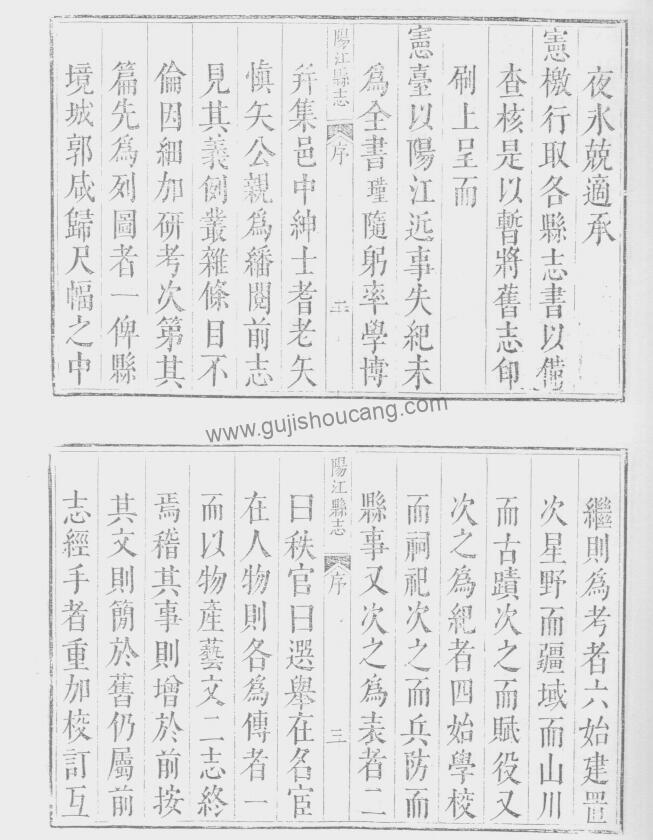 夜永兢適承
憲檄行取各縣志書以備
查核是以暫將舊志印
刷上呈而
憲臺以陽江近事失紀未
爲全書瑾隨躬率學博
陽江縣志 序 二
并集邑中紳士耆老矢
慎矢公親爲繙閱前志
見其義例叢雜條目不
倫因細加研考次第其
篇先爲列圖者一俾縣
境城郭咸歸尺幅之中
www.gujishoucang.com
繼則爲考者六始建置
次星野而疆域而山川
而古蹟次之而賦役又
次之爲紀者四始學校
而祠祀次之而兵防而
縣事又次之爲表者二
陽江縣志 序 三
曰秩官曰選舉在名宦
在人物則各爲傳者一
而以物產藝文二志終
焉稽其事則增於前按
其文則簡於舊仍屬前
志經手者重加校訂互